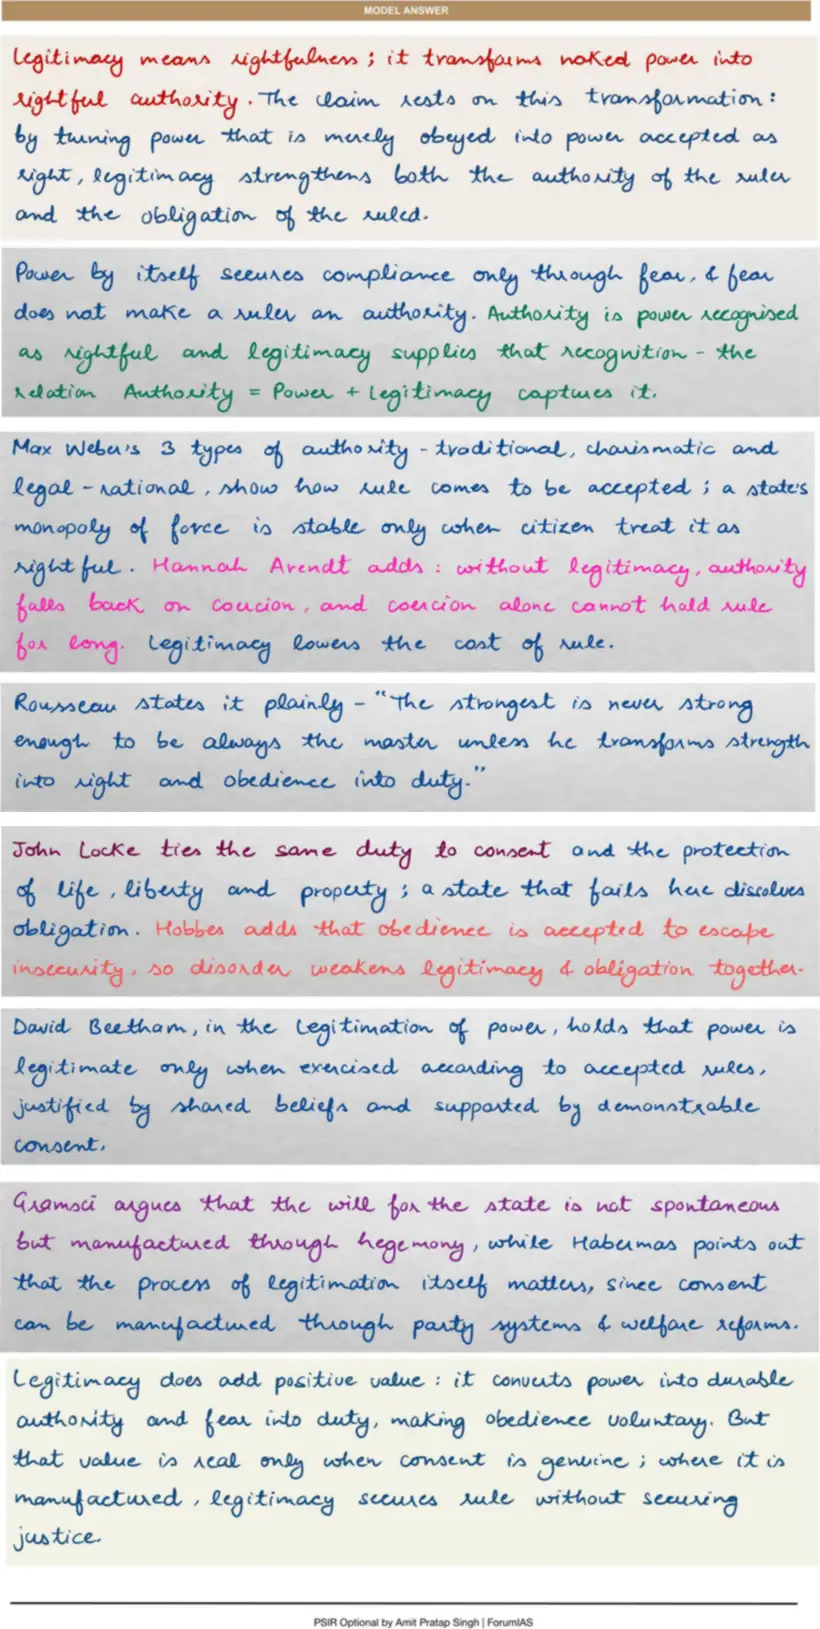 MODEL ANSWER
Legitimacy means rightfulness; it transforms naked power into
rightful authority. The claim rests on this transformation:
by turning power that is merely obeyed into power accepted as
right, legitimacy strengthens both the authority of the ruler
and the obligation of the ruled.
Power by itself secures compliance only through fear, & fear
does not make a ruler an authority. Authority is power recognised
as rightful and legitimacy supplies that recognition - the
relation Authority = Power + Legitimacy captures it.
Max Weber's 3 types of authority - traditional, charismatic and
legal - rational, show how rule comes to be accepted; a state's
monopoly of force is stable only when citizen treat it as
rightful. Hannah Arendt adds: without legitimacy, authority
falls back on coercion, and coercion alone cannot hold rule
for long. Legitimacy lowers the cost of rule.
Rousseau states it plainly - "The strongest is never strong
enough to be always the master unless he transforms strength
into right and obedience into duty."
John Locke ties the same duty to consent and the protection
of life, liberty and property; a state that fails here dissolves
obligation. Hobbes adds that obedience is accepted to escape
insecurity, so disorder weakens legitimacy & obligation together.
David Beetham, in the Legitimation of power, holds that power is
legitimate only when exercised according to accepted rules,
justified by shared beliefs and supported by demonstrable
consent.
Gramsci argues that the will for the state is not spontaneous
but manufactured through hegemony, while Habermas points out
that the process of legitimation itself matters, since consent
can be manufactured through party systems & welfare reforms.
Legitimacy does add positive value: it converts power into durable
authority and fear into duty, making obedience voluntary. But
that value is real only when consent is genuine; where it is
manufactured, legitimacy secures rule without securing
justice.
PSIR Optional by Amit Pratap Singh | ForumIAS